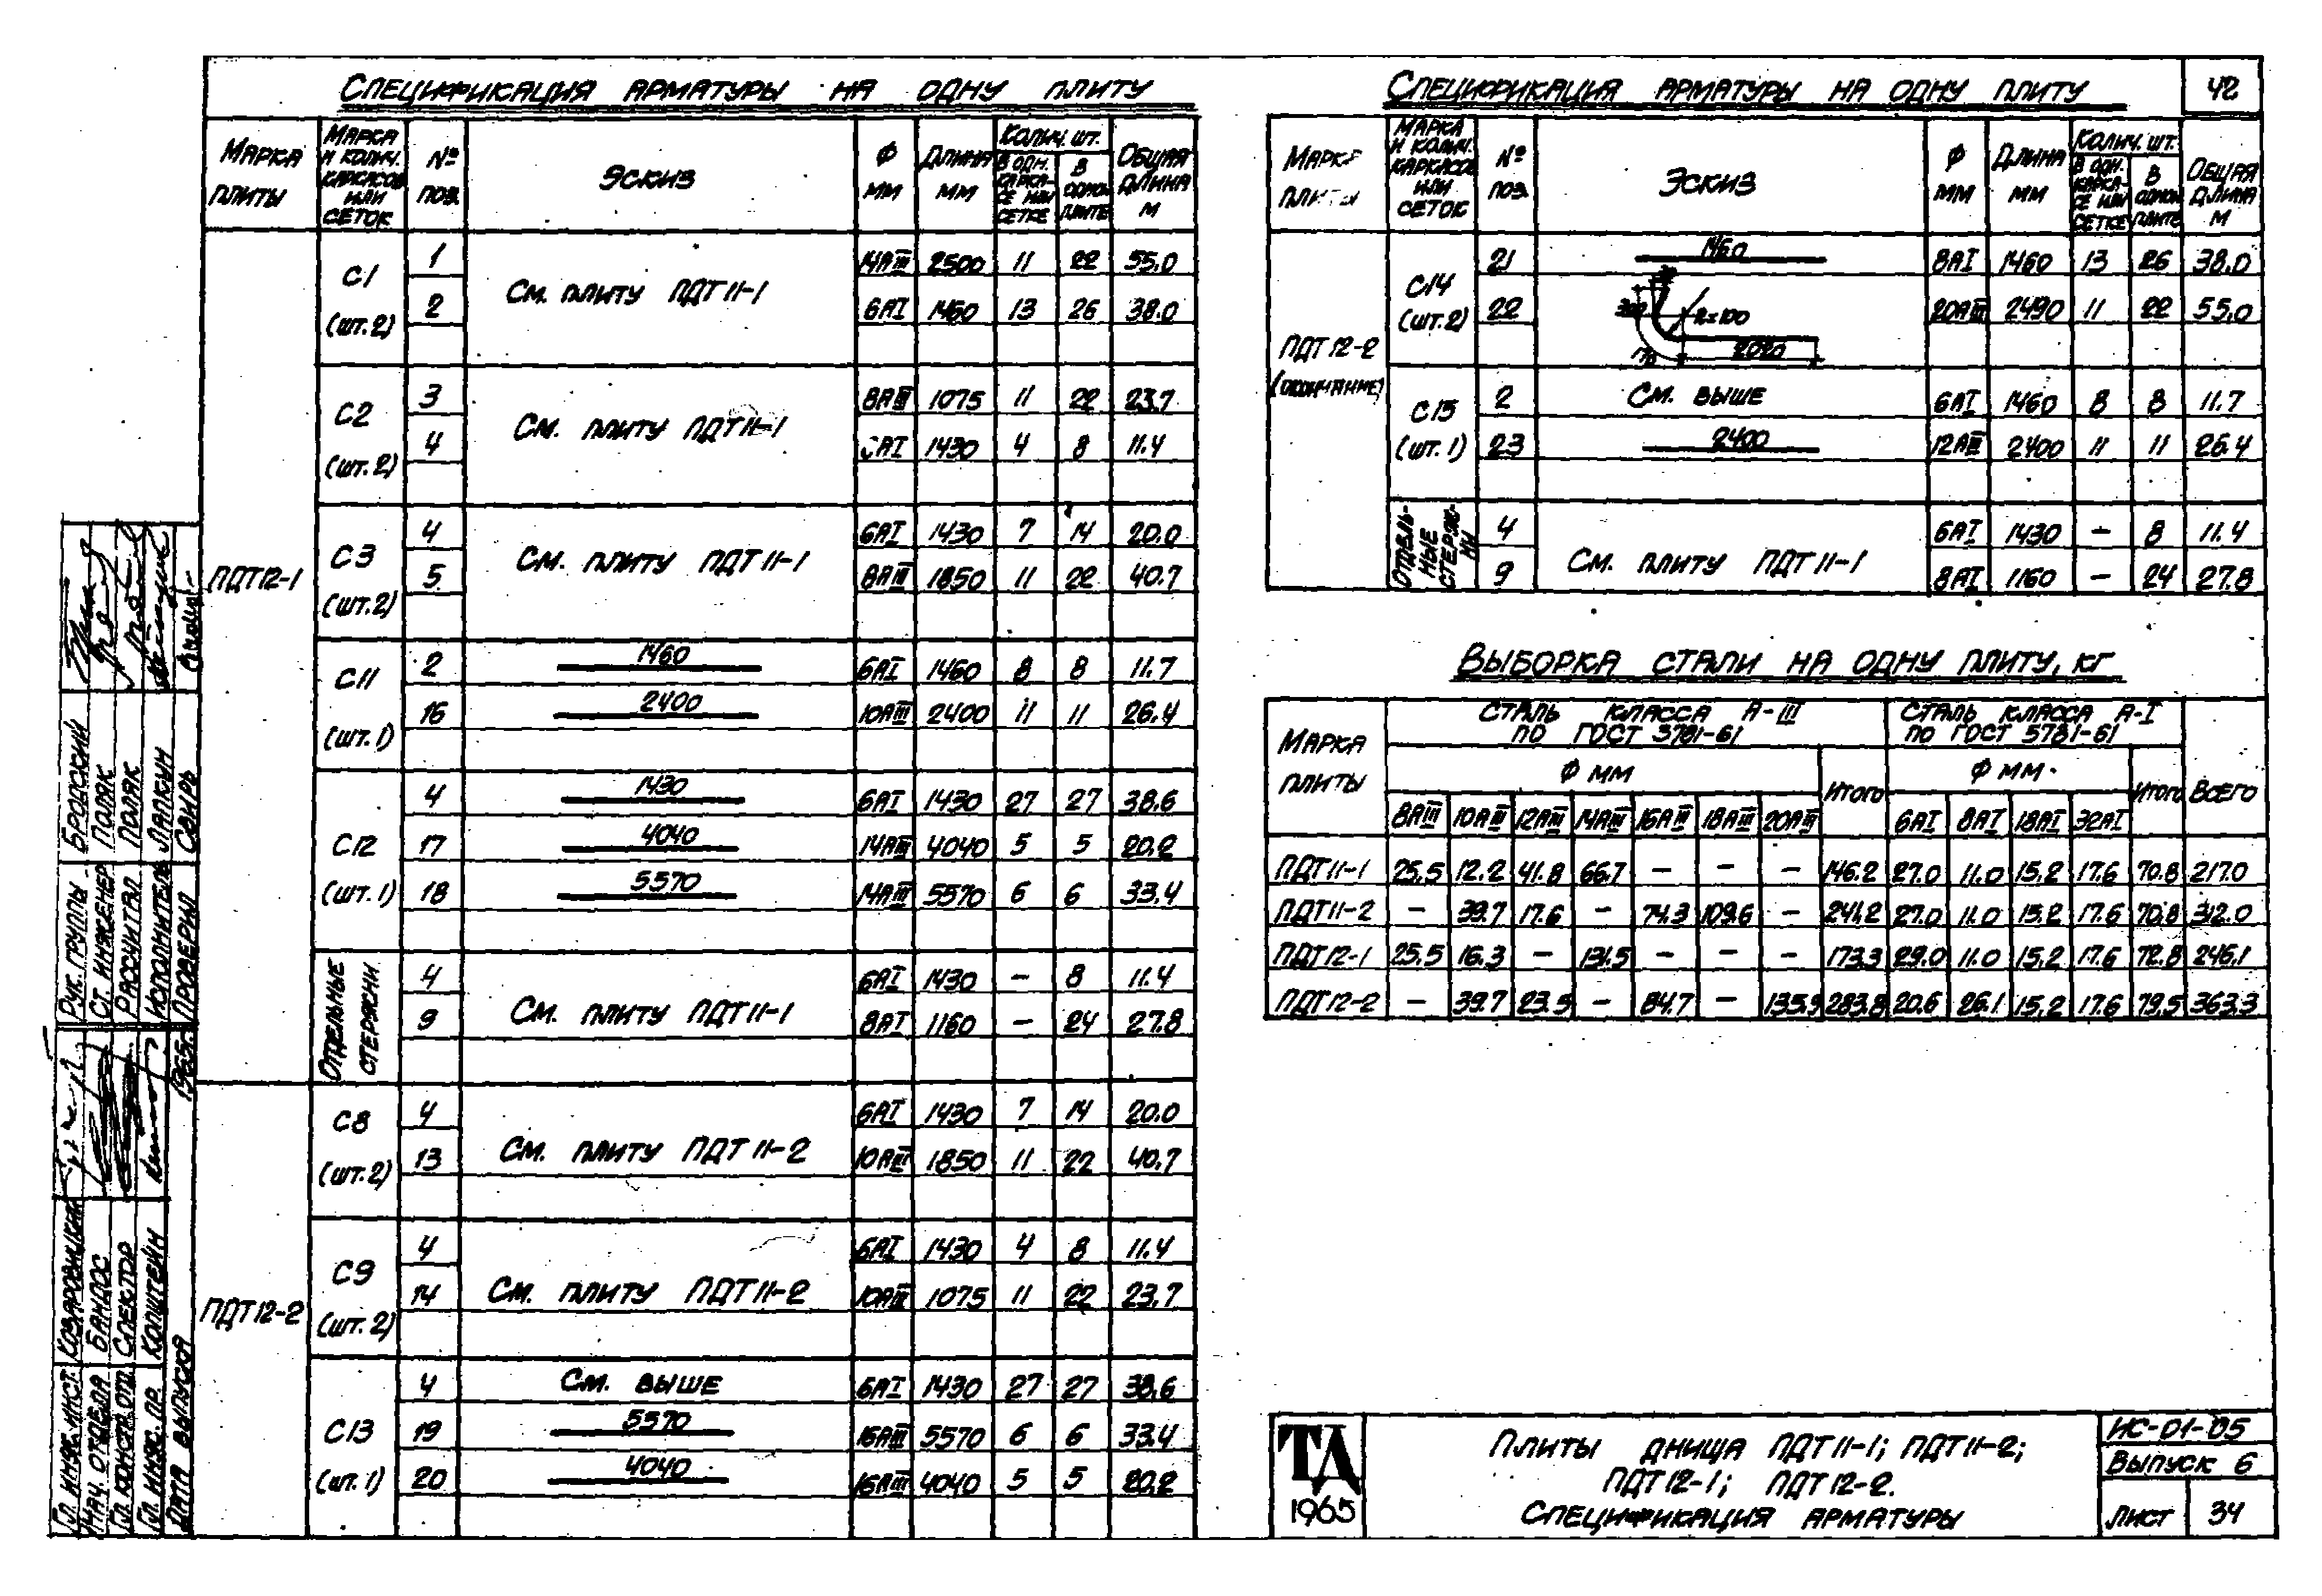 Спецификация арматуры на одну плиту
Марка плиты | Марка и колич. каркасов или сеток | № поз. | Эскиз | Ф мм | Длина мм | Колич. шт. | Общая длина м
В одн. каркасе или сетке | В одной плите
ПДТ12-1
С1 (шт.2) | См. плиту ПДТ11-1
1 | 14АIII | 2500 | 11 | 22 | 55.0
2 | 6АI | 1460 | 13 | 26 | 38.0
С2 (шт.2) | См. плиту ПДТ11-1
3 | 8АIII | 1075 | 11 | 22 | 23.7
4 | АI | 1430 | 4 | 8 | 11.4
С3 (шт.2) | См. плиту ПДТ11-1
4 | 6АI | 1430 | 7 | 14 | 20.0
5 | 8АIII | 1850 | 11 | 22 | 40.7
С11 (шт.1)
2 | 1460 | 6АI | 1460 | 8 | 8 | 11.7
16 | 2400 | 10АIII | 2400 | 11 | 11 | 26.4
С12 (шт.1)
4 | 1430 | 6АI | 1430 | 27 | 27 | 38.6
17 | 4040 | 14АIII | 4040 | 5 | 5 | 20.2
18 | 5570 | 14АIII | 5570 | 6 | 6 | 33.4
Отдельные стержни | См. плиту ПДТ11-1
4 | 6АI | 1430 | - | 8 | 11.4
9 | 8АI | 1160 | - | 24 | 27.8
ПДТ12-2
С8 (шт.2) | См. плиту ПДТ11-2
4 | 6АI | 1430 | 7 | 14 | 20.0
13 | 10АIII | 1850 | 11 | 22 | 40.7
С9 (шт.2) | См. плиту ПДТ11-2
4 | 6АI | 1430 | 4 | 8 | 11.4
14 | 10АIII | 1075 | 11 | 22 | 23.7
С13 (шт.1)
4 | См. выше | 6АI | 1430 | 27 | 27 | 38.6
19 | 5570 | 16АIII | 5570 | 6 | 6 | 33.4
20 | 4040 | 16АIII | 4040 | 5 | 5 | 20.2
Спецификация арматуры на одну плиту
42
Марка плиты | Марка и колич. каркасов или сеток | № поз. | Эскиз | Ф мм | Длина мм | Колич. шт. | Общая длина м
В одн. каркасе или сетке | В одной плите
ПДТ12-2 (окончание)
С14 (шт.2)
21 | 1460 | 8АI | 1460 | 13 | 26 | 38.0
22 | R=100 | 2020 | 20АIII | 2490 | 11 | 22 | 55.0
С15 (шт.1)
2 | См. выше | 6АI | 1460 | 8 | 8 | 11.7
23 | 2400 | 12АIII | 2400 | 11 | 11 | 26.4
Отдельные стержни | См. плиту ПДТ11-1
4 | 6АI | 1430 | - | 8 | 11.4
9 | 8АI | 1160 | - | 24 | 27.8
Выборка стали на одну плиту, кг
Марка плиты | Сталь класса А-III по ГОСТ 5781-61 | Сталь класса А-I по ГОСТ 5781-61 | Всего
Ф мм | Итого | Ф мм | Итого
8АIII | 10АIII | 12АIII | 14АIII | 16АIII | 18АIII | 20АIII | 6АI | 8АI | 18АI | 32АI
ПДТ11-1 | 25.5 | 12.2 | 41.8 | 66.7 | - | - | - | 146.2 | 27.0 | 11.0 | 15.2 | 17.6 | 70.8 | 217.0
ПДТ11-2 | - | 39.7 | 17.6 | - | 74.3 | 109.6 | - | 241.2 | 27.0 | 11.0 | 15.2 | 17.6 | 70.8 | 312.0
ПДТ12-1 | 25.5 | 16.3 | - | 131.5 | - | - | - | 173.3 | 29.0 | 11.0 | 15.2 | 17.6 | 72.8 | 246.1
ПДТ12-2 | - | 39.7 | 23.5 | - | 84.7 | - | 135.9 | 283.8 | 20.6 | 26.1 | 15.2 | 17.6 | 79.5 | 363.3
Рук. группы Бродский
Ст. инженер Поляк
Рассчитал Поляк
Исполнитель Лапкин
Проверил Свирь
Гл. инж. инст.
Нач. отдела Бандос
Гл. констр. отд. Спектор
Гл. инж. пр. Копштейн
Дата выпуска 1965г.
ТА 1965
Плиты днища ПДТ11-1; ПДТ11-2;
ПДТ12-1; ПДТ12-2.
Спецификация арматуры
ИС-01-05
Выпуск 6
Лист 34